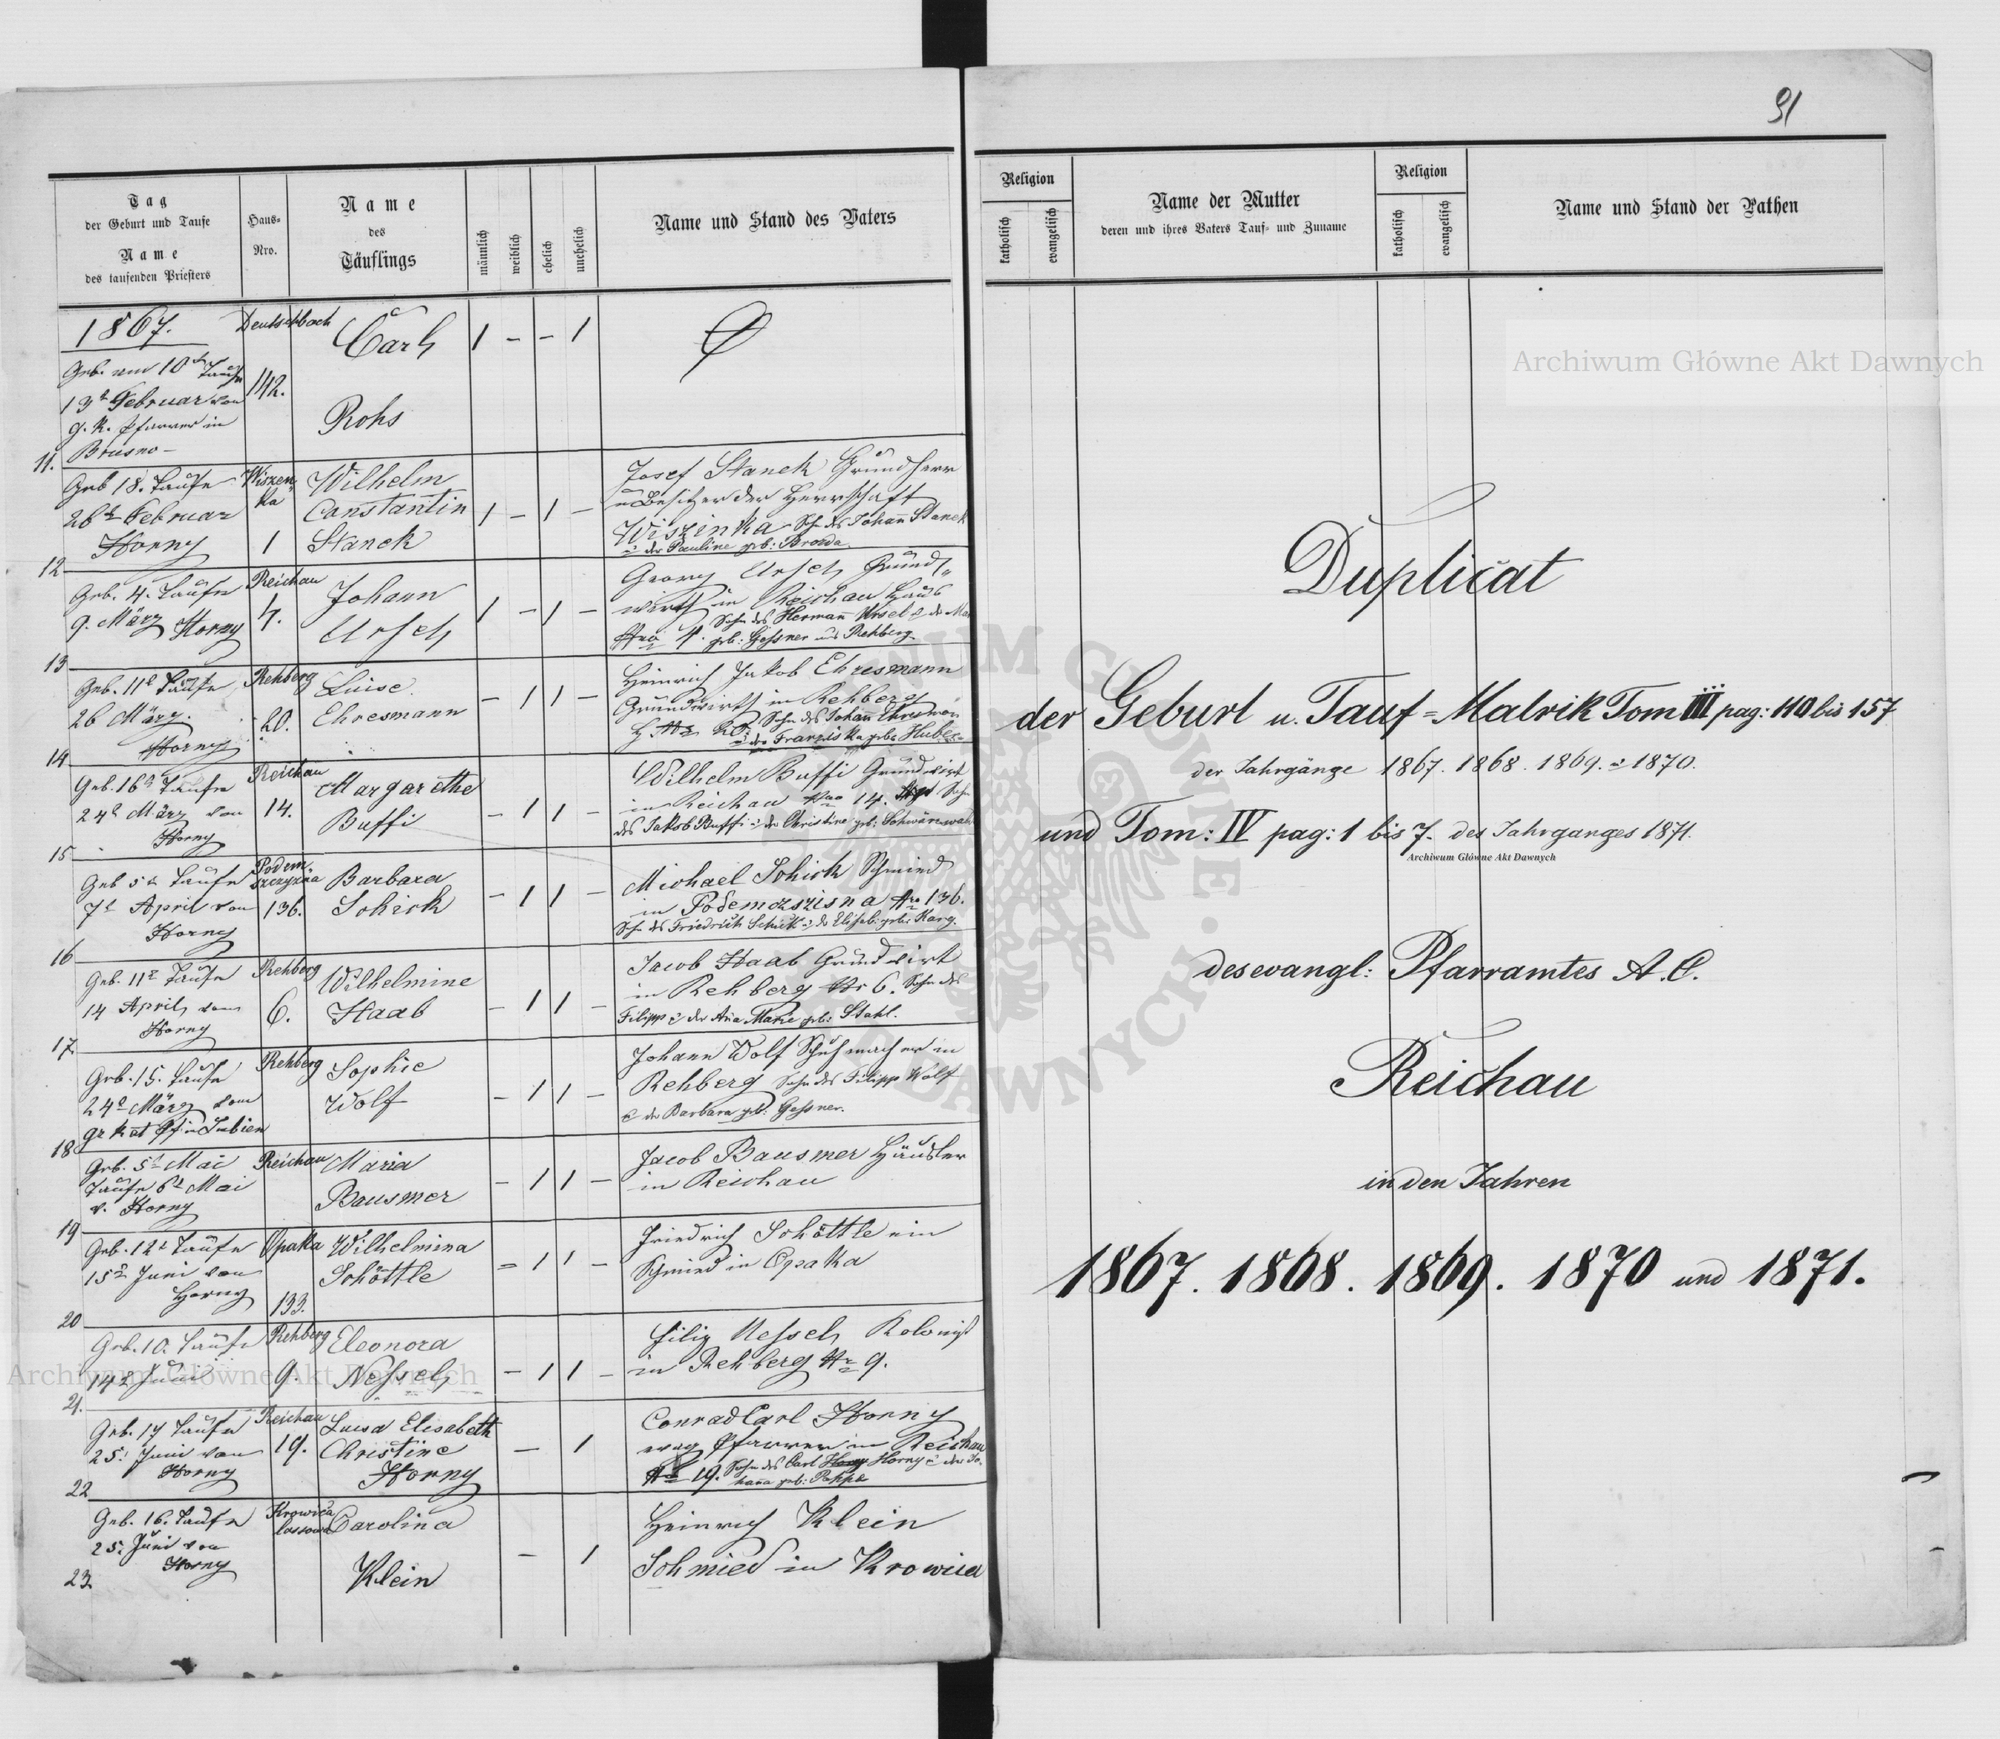 Tag
der Geburt und Taufe
Name
des taufenden Priesters
Haus-
Nro.
Name
des
Täuflings
männlich
weiblich
ehelich
unehelich
Name und Stand des Vaters
1867.
Deutschbach
Carl
1 - - 1
Geb. am 10t Taufe
13t Februar von
g. k. Pfarrer in
Brusno -
142.
Rohs
11.
Geb 18. Taufe
26t Februar
Horny
Wiszen-
ka
1
Wilhelm
Constantin
Stanek
1 - 1 -
Josef Stanek Grundherr
u Besitzer der Herrschaft
Wiszinka Sohn des Johann Stanek
u der Pauline geb: Broda
12
Geb. 4. Taufe
9. März Horny
Reichau
4.
Johann
Ursel
1 - 1 -
Georg Ursel Grund-
wirth in Reichau Haus
Nro 4. Sohn des Hermann Ursel u der
geb: Gessner aus Rehberg.
13
Geb. 11t Taufe
26 März.
Horny
Rehberg
20.
Luise
Ehresmann
- 1 1 -
Heinrich Jakob Ehresmann
Grundwirth in Rehberg
H Nr 20. Sohn des Johann Ehresman
u der Franziska geb: Huber
14
Geb. 16t Taufe
24t März von
Horny
Reichau
14.
Margarethe
Buffi
- 1 1 -
Wilhelm Buffi Grundwirt
in Reichau Nro 14. Sohn
des Jakob Buffi u der Christine geb: Schwarzwald
15
Geb 5t Taufe
7t April von
Horny
Podem-
szczyzna
136.
Barbara
Schick
- 1 1 -
Michael Schick Schmied
in Podemszisna Nro 136.
Sohn des Friedrich Schick u der Elisab: geb: Karg.
16
Geb. 11t Taufe
14 April von
Horny
Rehberg
6.
Wilhelmine
Haab
- 1 1 -
Jacob Haab Grundwirt
in Rehberg Nr 6. Sohn des
Filipp u der Ana Marie geb: Stahl.
17.
Geb. 15. Taufe
24t März vom
gr kat Pf in Lubien
Rehberg
Sophie
Wolf
- 1 1 -
Johann Wolf Schuhmacher in
Rehberg Sohn des Filipp Wolf
u der Barbara geb: Gessner.
18
Geb. 5t Mai
Taufe 6t Mai
v. Horny
Reichau
Maria
Bausmer
- 1 1 -
Jacob Bausmer Häusler
in Reichau
19
Geb. 12t Taufe
15t Juni von
Horny
Opaka
133.
Wilhelmina
Schöttle
- 1 1 -
Friedrich Schöttle ein
Schmied in Opaka
20
Geb. 10. Taufe
14t Juni
Rehberg
9.
Eleonora
Nessel
- 1 1 -
Filip Nessel Kolonist
in Rehberg Nr 9.
21.
Geb. 17 Taufe
25. Juni von
Horny
Reichau
19.
Luisa Elisabeth
Christine
Horny
- 1
Conrad Carl Horny
evag Pfarrer in Reichau
Nr 19. Sohn des Carl Horny u der Jo-
hana geb: Pappe
22
Geb. 16. Taufe
25. Juni von
Horny
Krowica
lassowa
Carolina
Klein
- 1
Heinrich Klein
Schmied in Krowica
23.
91
Religion
katholisch
evangelisch
Name der Mutter
deren und ihres Vaters Tauf- und Zuname
Religion
katholisch
evangelisch
Name und Stand der Pathen
Archiwum Główne Akt Dawnych
Duplicat
der Geburt u. Tauf=Matrik Tom III pag: 110 bis 157
der Jahrgänge 1867. 1868. 1869. u 1870.
und Tom: IV pag: 1 bis 7. des Jahrganges 1871.
Archiwum Główne Akt Dawnych
des evangl: Pfarramtes A. C.
Reichau
in den Jahren
1867. 1868. 1869. 1870 und 1871.
Archiwum Główne Akt Dawnych